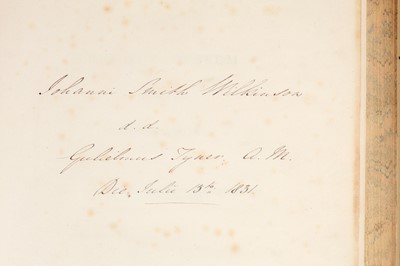 Johanni Smith Wilkinson
d. d.
Gulielmus Tyner, A. M.
Die, Julii 13th 1831.